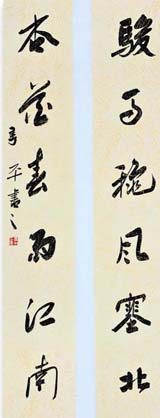 駿马秋风塞北
杏花春雨江南
平書之